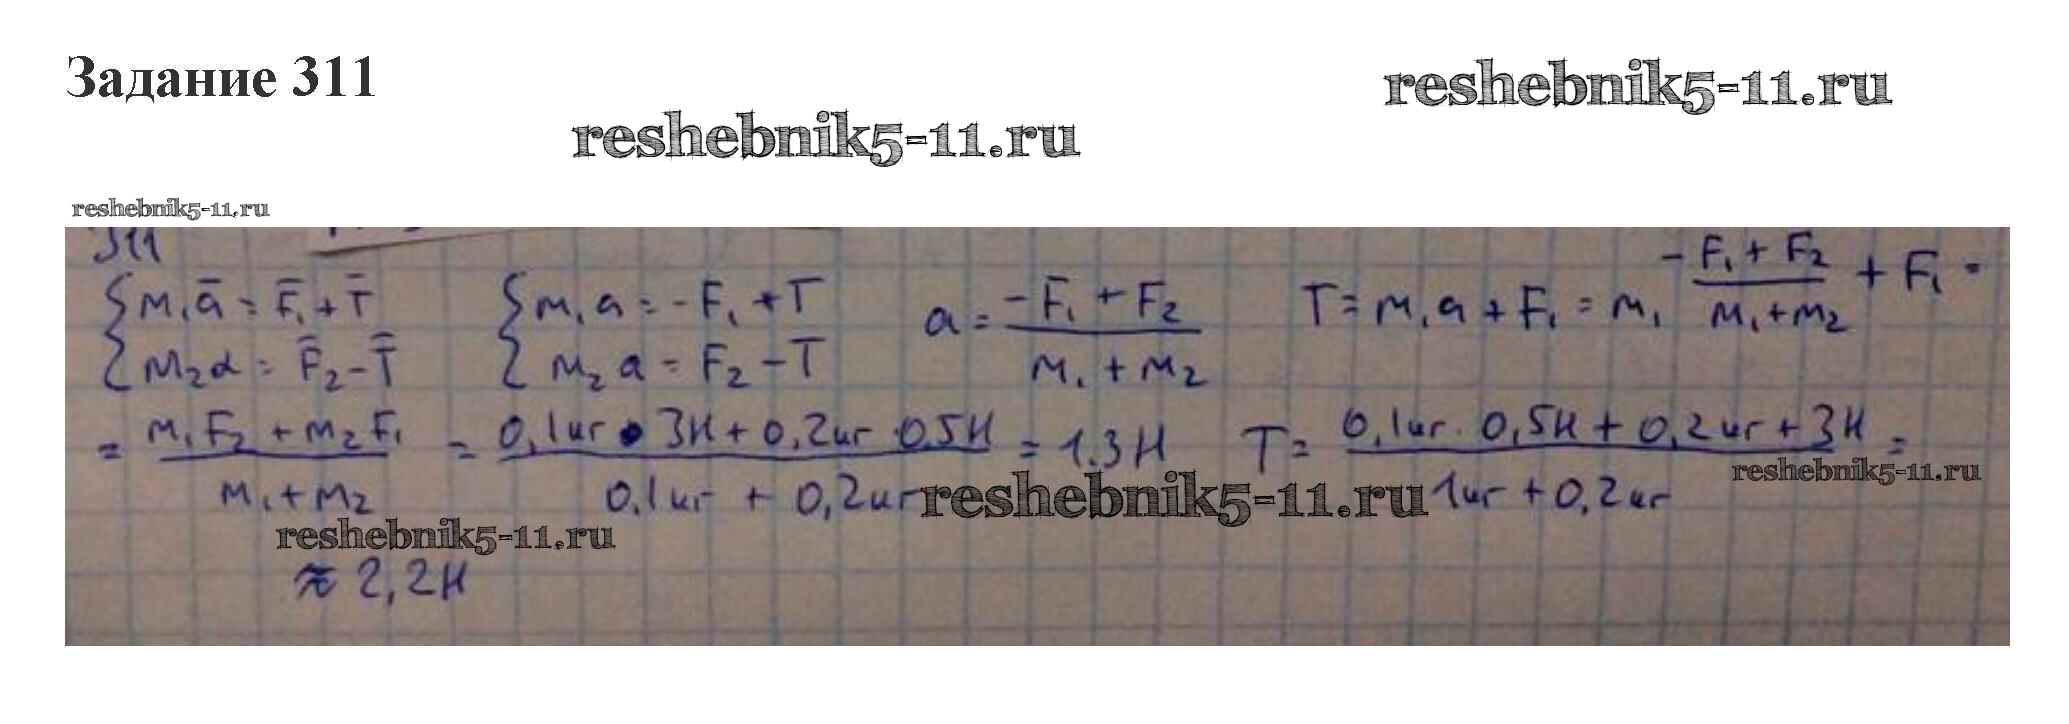 Задание 311
reshebnik5-11.ru
reshebnik5-11.ru
reshebnik5-11.ru
311
{ m₁a̅ = F̅₁ + T̅ { m₁a = -F₁ + T a = (-F₁ + F₂)/(m₁ + m₂) T = m₁a + F₁ = m₁ (-F₁ + F₂)/(m₁ + m₂) + F₁ =
{ m₂a = F̅₂ - T̅ { m₂a = F₂ - T
= (m₁F₂ + m₂F₁)/(m₁ + m₂) = (0,1кг · 3Н + 0,2кг · 0,5Н)/(0,1кг + 0,2кг) = 1.3Н T = (0,1кг · 0,5Н + 0,2кг + 3Н)/(1кг + 0,2кг) =
reshebnik5-11.ru
reshebnik5-11.ru
reshebnik5-11.ru
≈ 2,2Н